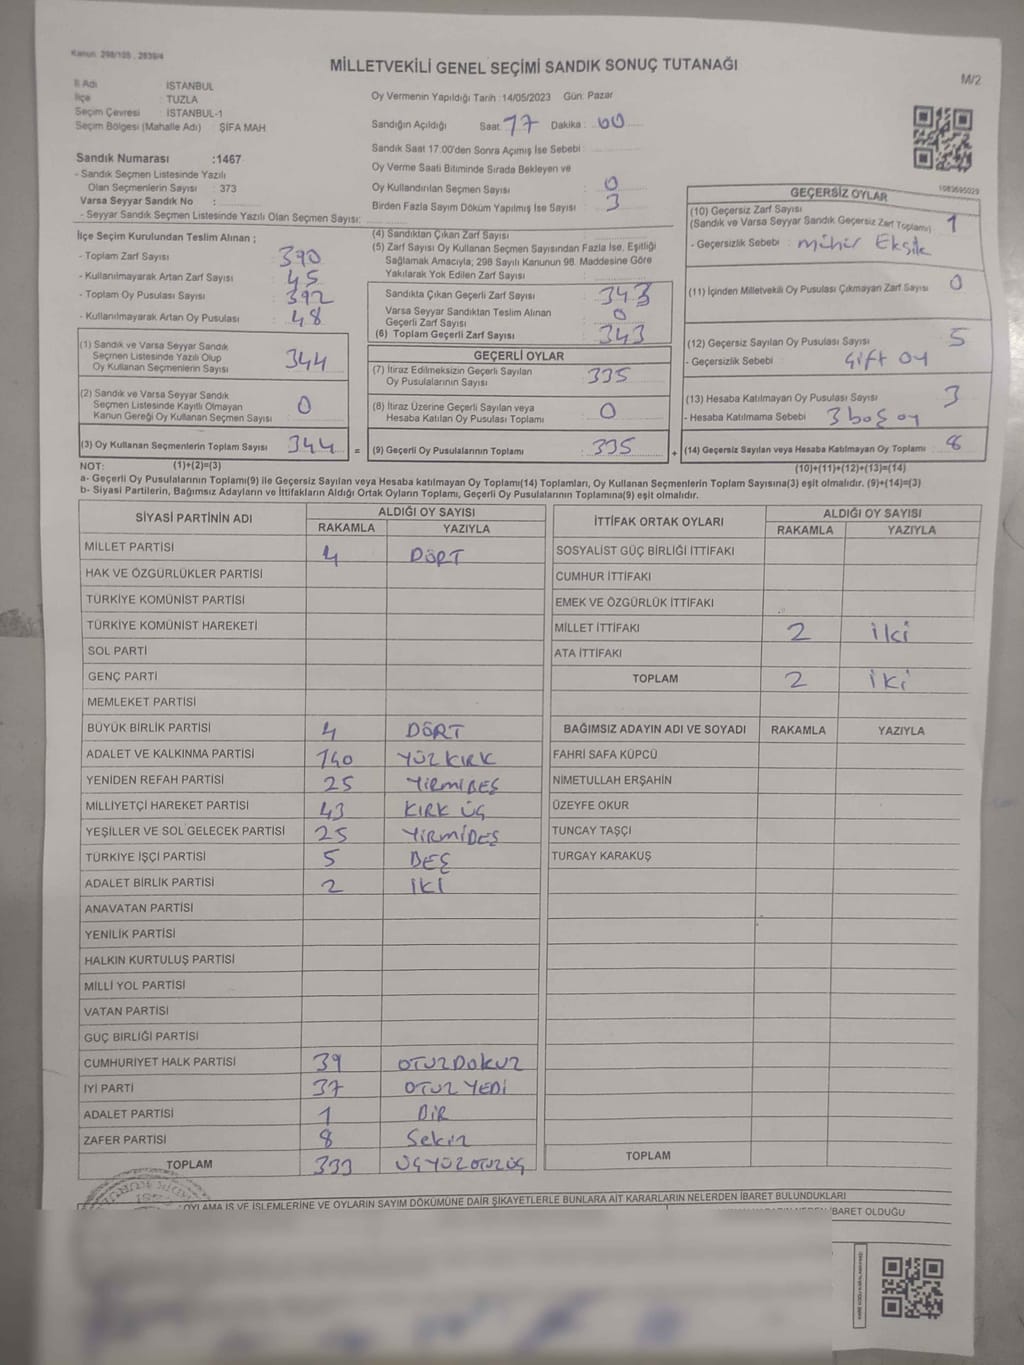 Kanun 298/105 , 2839/4
MİLLETVEKİLİ GENEL SEÇİMİ SANDIK SONUÇ TUTANAĞI
M/2
İl Adı İSTANBUL
İlçe TUZLA
Seçim Çevresi İSTANBUL-1
Seçim Bölgesi (Mahalle Adı) : ŞİFA MAH
Oy Vermenin Yapıldığı Tarih :14/05/2023 Gün: Pazar
Sandığın Açıldığı Saat 17 Dakika : 00
Sandık Saat 17.00'den Sonra Açımış İse Sebebi :
Oy Verme Saati Bitiminde Sırada Bekleyen ve
Oy Kullandırılan Seçmen Sayısı 0
Birden Fazla Sayım Döküm Yapılmış İse Sayısı 3
Sandık Numarası :1467
- Sandık Seçmen Listesinde Yazılı
Olan Seçmenlerin Sayısı : 373
Varsa Seyyar Sandık No :
- Seyyar Sandık Seçmen Listesinde Yazılı Olan Seçmen Sayısı:
İlçe Seçim Kurulundan Teslim Alınan ;
- Toplam Zarf Sayısı 390
- Kullanılmayarak Artan Zarf Sayısı 45
- Toplam Oy Pusulası Sayısı 392
- Kullanılmayarak Artan Oy Pusulası : 48
(1) Sandık ve Varsa Seyyar Sandık
Seçmen Listesinde Yazılı Olup
Oy Kullanan Seçmenlerin Sayısı 344
(2) Sandık ve Varsa Seyyar Sandık
Seçmen Listesinde Kayıtlı Olmayan
Kanun Gereği Oy Kullanan Seçmen Sayısı 0
(3) Oy Kullanan Seçmenlerin Toplam Sayısı 344 =
(4) Sandıktan Çıkan Zarf Sayısı
(5) Zarf Sayısı Oy Kullanan Seçmen Sayısından Fazla İse, Eşitliği
Sağlamak Amacıyla; 298 Sayılı Kanunun 98. Maddesine Göre
Yakılarak Yok Edilen Zarf Sayısı
Sandıkta Çıkan Geçerli Zarf Sayısı 343
Varsa Seyyar Sandıktan Teslim Alınan
Geçerli Zarf Sayısı 0
(6) Toplam Geçerli Zarf Sayısı 343
GEÇERLİ OYLAR
(7) İtiraz Edilmeksizin Geçerli Sayılan
Oy Pusulalarının Sayısı 335
(8) İtiraz Üzerine Geçerli Sayılan veya
Hesaba Katılan Oy Pusulaları Toplamı 0
(9) Geçerli Oy Pusulalarının Toplamı 335 +
1083695029
GEÇERSİZ OYLAR
(10) Geçersiz Zarf Sayısı
(Sandık ve Varsa Seyyar Sandık Geçersiz Zarf Toplamı) 1
- Geçersizlik Sebebi : mühür Eksik
(11) İçinden Milletvekili Oy Pusulası Çıkmayan Zarf Sayısı 0
(12) Geçersiz Sayılan Oy Pusulası Sayısı 5
- Geçersizlik Sebebi : Çift oy
(13) Hesaba Katılmayan Oy Pusulası Sayısı 3
- Hesaba Katılmama Sebebi 3 boş oy
(14) Geçersiz Sayılan veya Hesaba Katılmayan Oy Toplamı 8
NOT: (1)+(2)=(3) (10)+(11)+(12)+(13)=(14)
a- Geçerli Oy Pusulalarının Toplamı(9) ile Geçersiz Sayılan veya Hesaba katılmayan Oy Toplamı(14) Toplamları, Oy Kullanan Seçmenlerin Toplam Sayısına(3) eşit olmalıdır. (9)+(14)=(3)
b- Siyasi Partilerin, Bağımsız Adayların ve İttifakların Aldığı Ortak Oyların Toplamı, Geçerli Oy Pusulalarının Toplamına(9) eşit olmalıdır.
SİYASİ PARTİNİN ADI ALDIĞI OY SAYISI
RAKAMLA YAZIYLA
MİLLET PARTİSİ 4 DÖRT
HAK VE ÖZGÜRLÜKLER PARTİSİ
TÜRKİYE KOMÜNİST PARTİSİ
TÜRKİYE KOMÜNİST HAREKETİ
SOL PARTİ
GENÇ PARTİ
MEMLEKET PARTİSİ
BÜYÜK BİRLİK PARTİSİ 4 DÖRT
ADALET VE KALKINMA PARTİSİ 140 YÜZ KIRK
YENİDEN REFAH PARTİSİ 25 YİRMİBEŞ
MİLLİYETÇİ HAREKET PARTİSİ 43 KIRK ÜÇ
YEŞİLLER VE SOL GELECEK PARTİSİ 25 YİRMİBEŞ
TÜRKİYE İŞÇİ PARTİSİ 5 BEŞ
ADALET BİRLİK PARTİSİ 2 İKİ
ANAVATAN PARTİSİ
YENİLİK PARTİSİ
HALKIN KURTULUŞ PARTİSİ
MİLLİ YOL PARTİSİ
VATAN PARTİSİ
GÜÇ BİRLİĞİ PARTİSİ
CUMHURİYET HALK PARTİSİ 39 OTUZDOKUZ
İYİ PARTİ 37 OTUZ YEDİ
ADALET PARTİSİ 1 BİR
ZAFER PARTİSİ 8 Sekiz
TOPLAM 333 ÜÇYÜZOTUZÜÇ
İTTİFAK ORTAK OYLARI ALDIĞI OY SAYISI
RAKAMLA YAZIYLA
SOSYALİST GÜÇ BİRLİĞİ İTTİFAKI
CUMHUR İTTİFAKI
EMEK VE ÖZGÜRLÜK İTTİFAKI
MİLLET İTTİFAKI 2 iki
ATA İTTİFAKI
TOPLAM 2 iki
BAĞIMSIZ ADAYIN ADI VE SOYADI RAKAMLA YAZIYLA
FAHRİ SAFA KÜPCÜ
NİMETULLAH ERŞAHİN
ÜZEYFE OKUR
TUNCAY TAŞÇI
TURGAY KARAKUŞ
TOPLAM
OYLAMA İŞ VE İŞLEMLERİNE VE OYLARIN SAYIM DÖKÜMÜNE DAİR ŞİKAYETLERLE BUNLARA AİT KARARLARIN NELERDEN İBARET BULUNDUKLARI
İBARET OLDUĞU